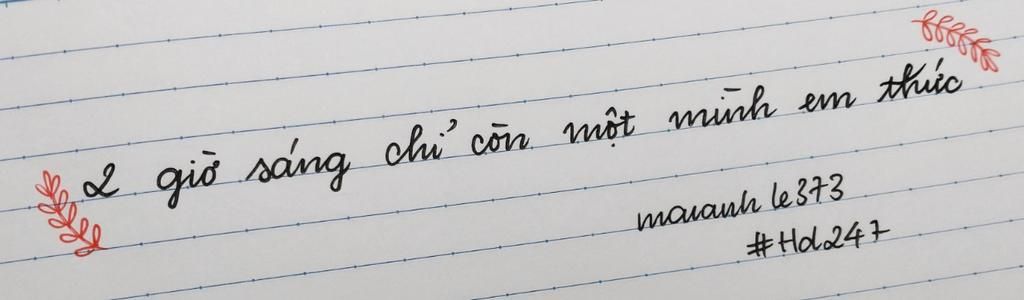 2 giờ sáng chỉ còn một mình em thức
maianh le373
#Hd247